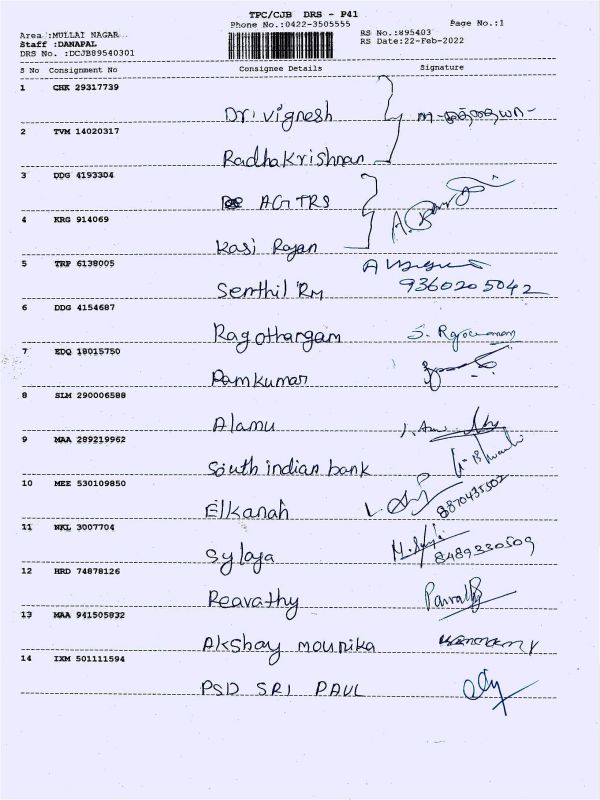 TPC/CJB DRS - P41
Phone No.:0422-3505555 Page No.:1
Area :MULLAI NAGAR
Staff :DANAPAL
DRS No. :DCJB89540301
RS No.:895403
RS Date:22-Feb-2022
S No Consignment No Consignee Details Signature
1 CHK 29317739
Dr. Vignesh
2 TVM 14020317
Radhakrishnan
3 DDG 4193304
AGTRS
4 KRG 914069
Kasi Rajan
5 TRP 6138005
Senthil RM 9360205042
6 DDG 4154687
Ragothargam
7 EDQ 18015750
Ramkumar
8 SLM 290006588
Alamu
9 MAA 289219962
South indian bank
10 MEE 530109850
Elkanah 8870435502
11 NKL 3007704
Sylaja 8489330509
12 HRD 74878126
Reavathy
13 MAA 941505832
Akshay mounika
14 IXM 501111594
PSD SRI PAUL